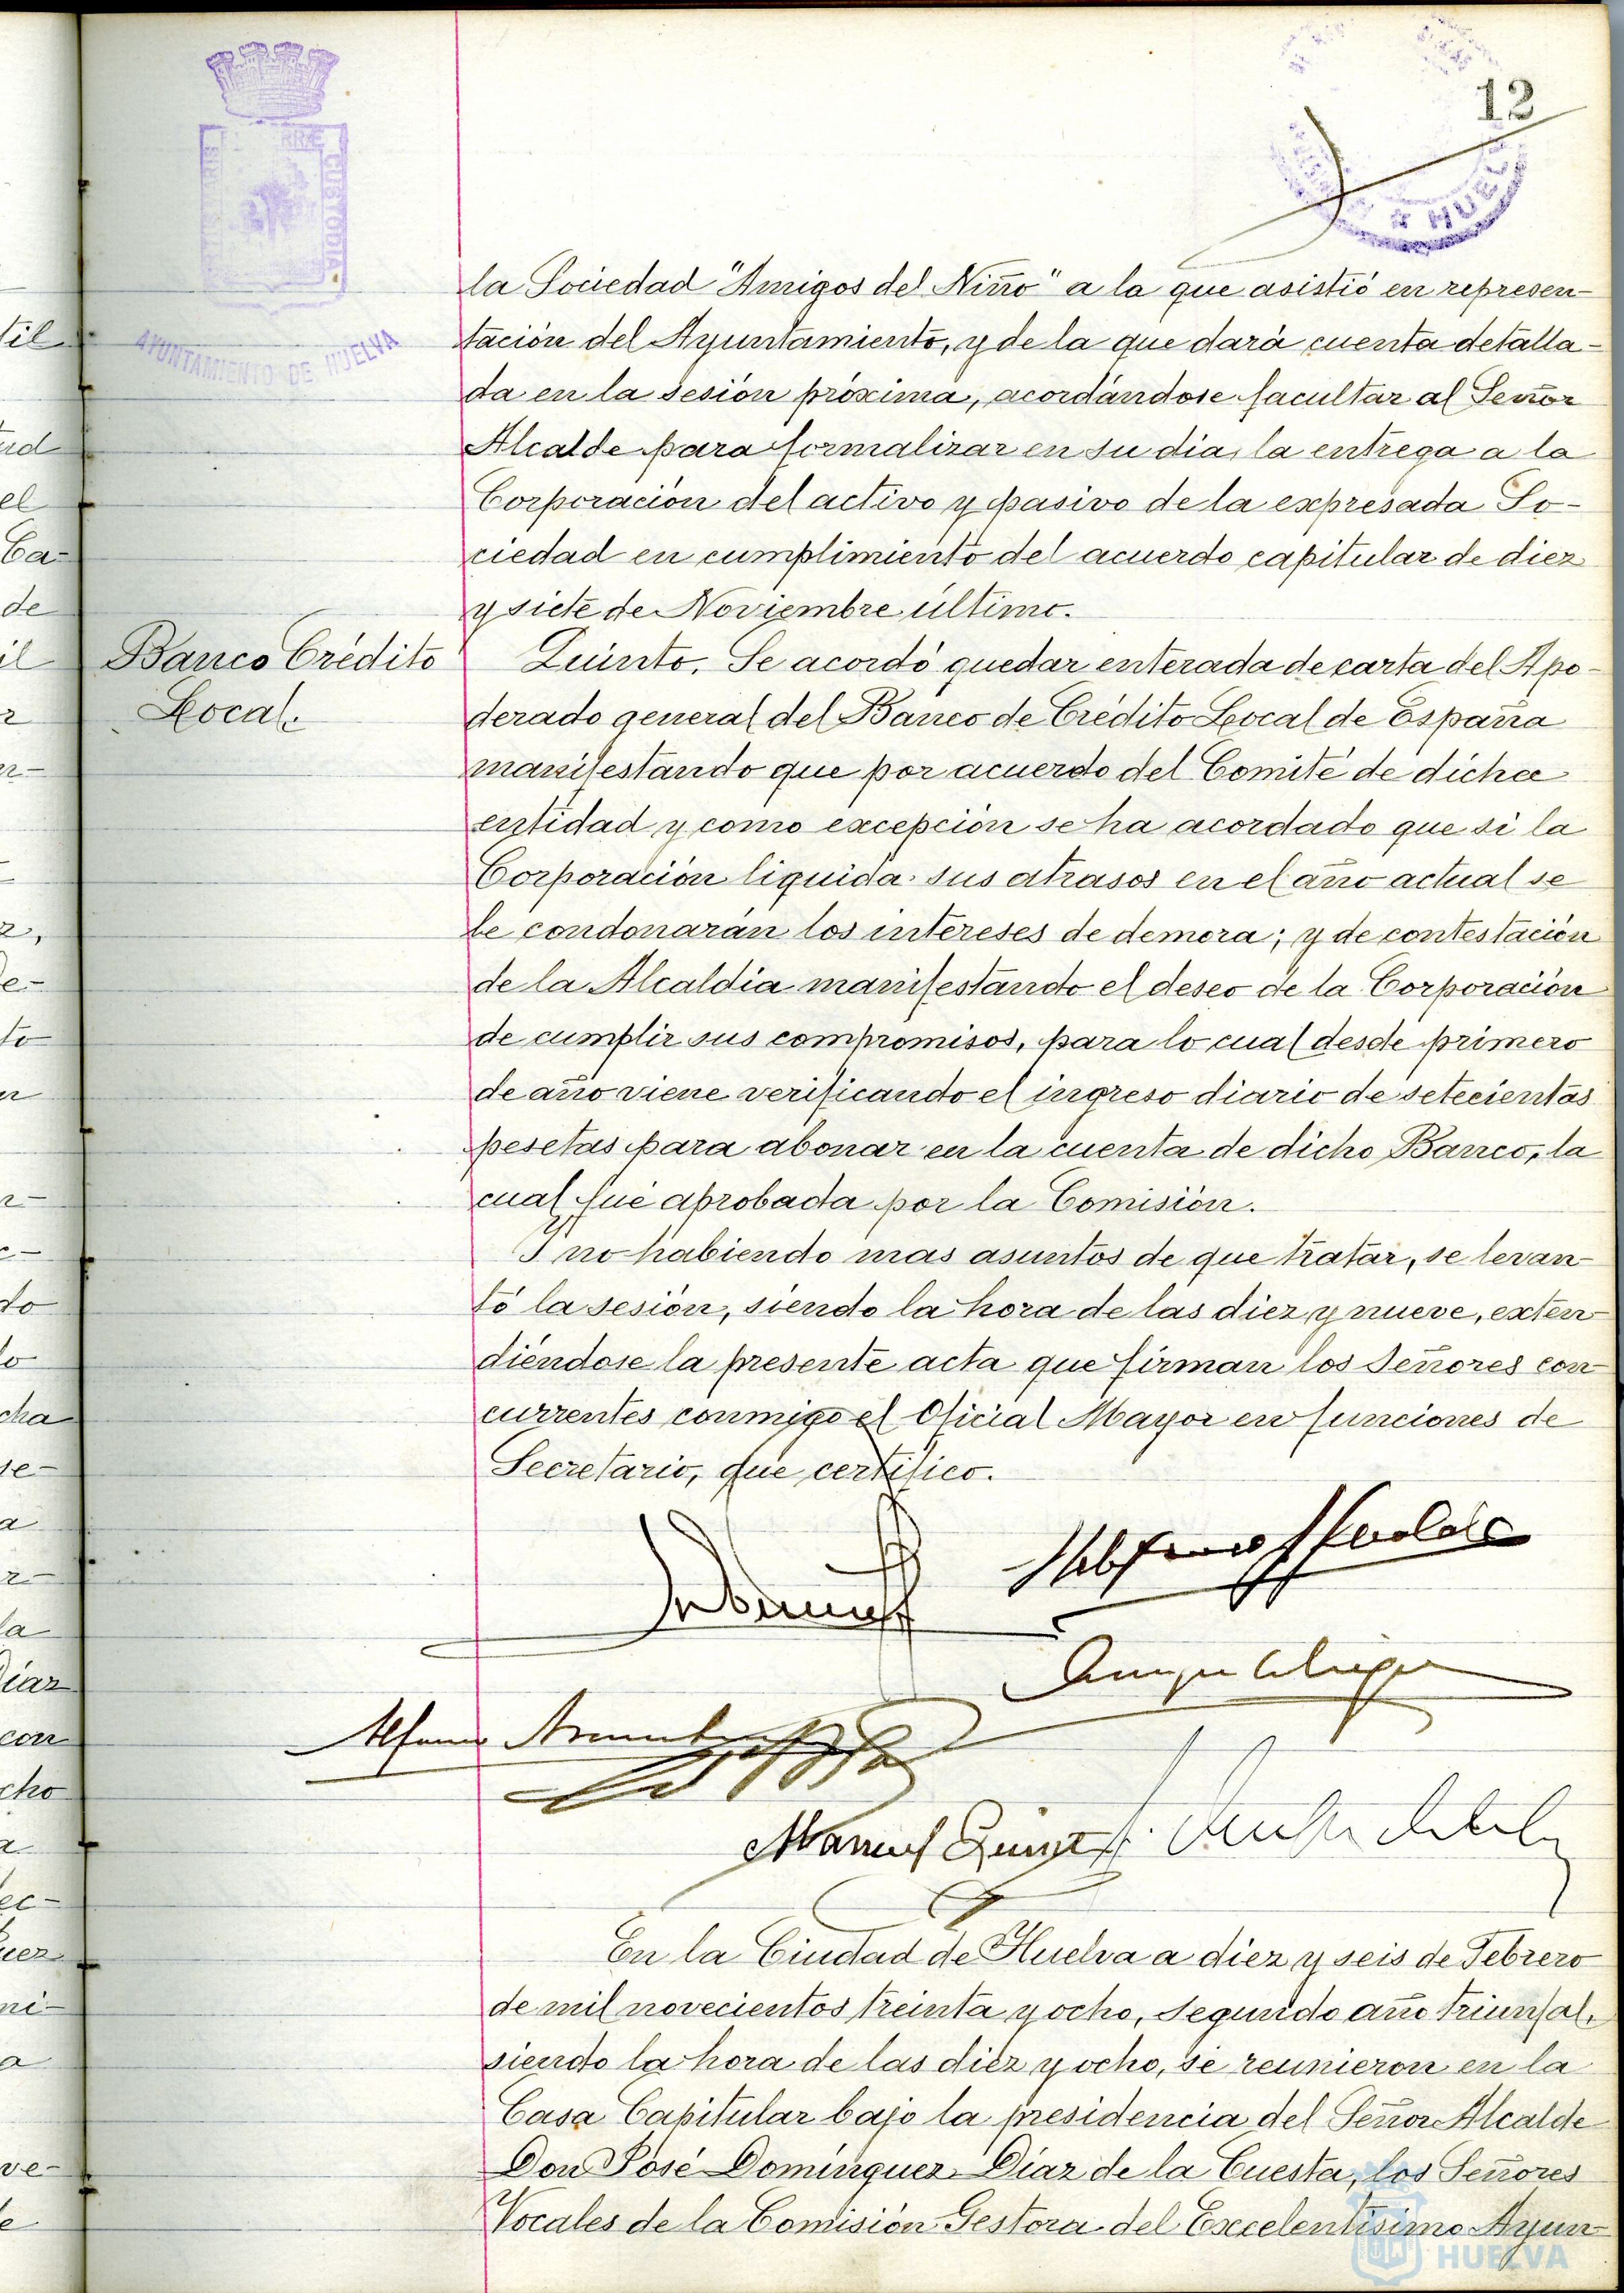 12
AYUNTAMIENTO DE HUELVA
CUSTODIA
HUELVA
la Sociedad "Amigos del Niño" a la que asistió en represen-
tación del Ayuntamiento, y de la que dará cuenta detalla-
da en la sesión próxima, acordándose facultar al Señor
Alcalde para formalizar en su dia, la entrega a la
Corporación del activo y pasivo de la expresada So-
ciedad en cumplimiento del acuerdo capitular de diez
y siete de Noviembre último.
Banco Crédito
Local.
Quinto. Se acordó quedar enterada de carta del Apo-
derado general del Banco de Crédito Local de España
manifestando que por acuerdo del Comité de dicha
entidad y como excepción se ha acordado que si la
Corporación liquida sus atrasos en el año actual se
le condonarán los intereses de demora; y de contestación
de la Alcaldia manifestando el deseo de la Corporación
de cumplir sus compromisos, para lo cual desde primero
de año viene verificando el ingreso diario de setecientas
pesetas para abonar en la cuenta de dicho Banco, la
cual fué aprobada por la Comisión.
Y no habiendo mas asuntos de que tratar, se levan-
tó la sesión, siendo la hora de las diez y nueve, exten-
diéndose la presente acta que firman los Señores con-
currentes conmigo el Oficial Mayor en funciones de
Secretario, que certifico.
Manuel
En la Ciudad de Huelva a diez y seis de Febrero
de mil novecientos treinta y ocho, Segundo año triunfal,
siendo la hora de las diez y ocho, se reunieron en la
Casa Capitular bajo la presidencia del Señor Alcalde
Don José Domínguez Díaz de la Cuesta, los Señores
Vocales de la Comisión Gestora del Excelentísimo Ayun-
HUELVA